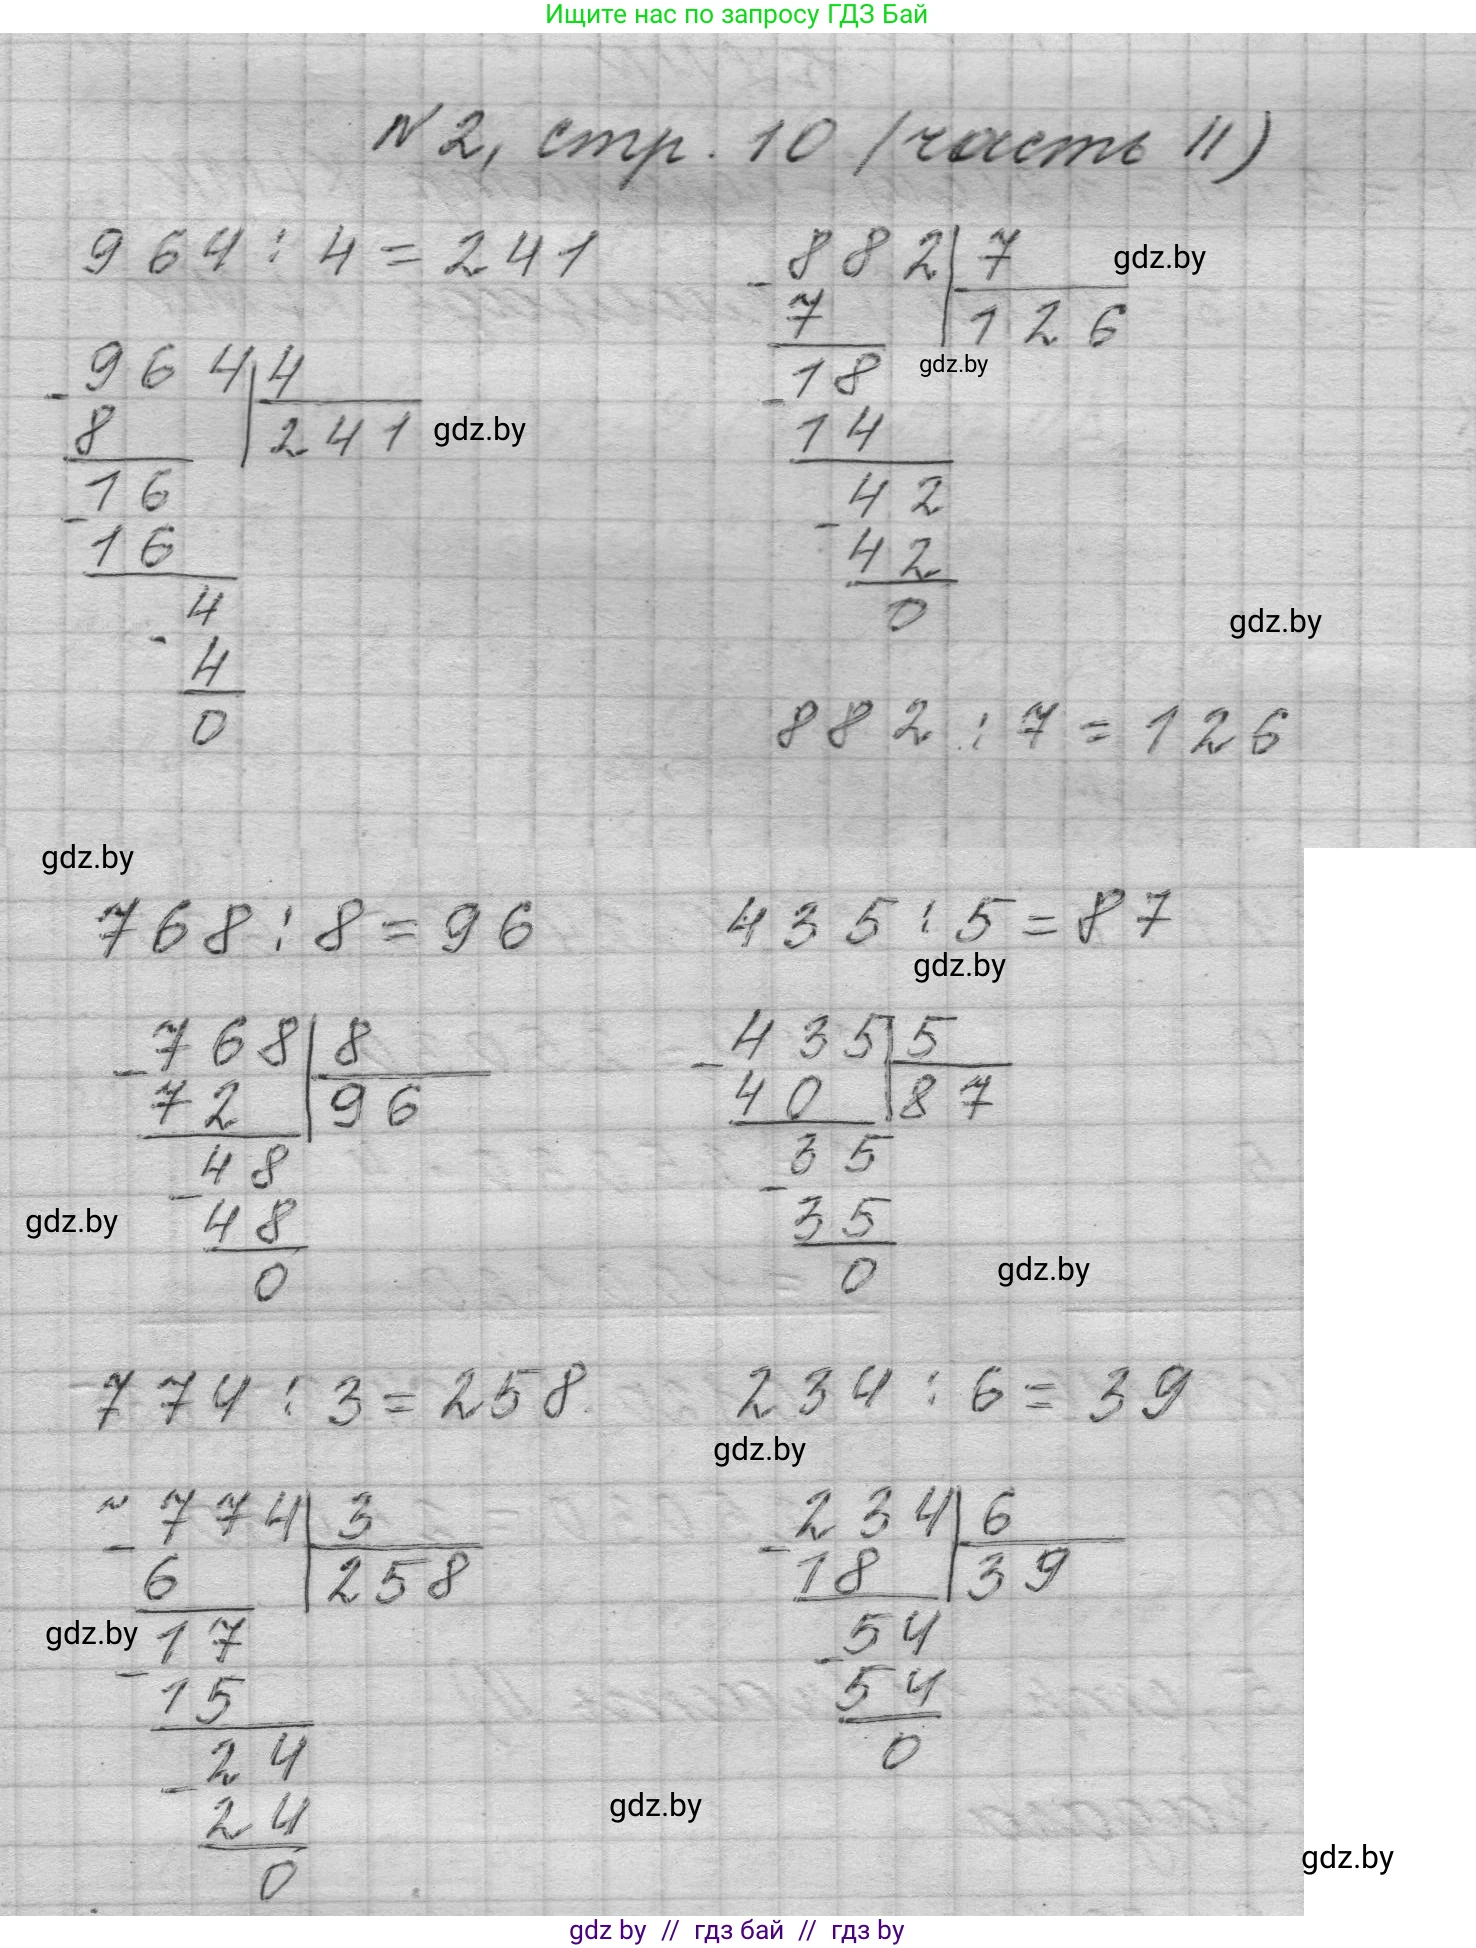 Ищите нас по запросу ГДЗ Бай
№2, стр. 10 (часть II)
964 : 4 = 241
964 4
8 241
16
16
4
4
0
gdz.by
882 7
7 126
18
14
42
42
0
gdz.by
gdz.by
gdz.by
882 : 7 = 126
gdz.by
768 : 8 = 96
768 8
72 96
48
48
0
gdz.by
435 : 5 = 87
gdz.by
435 5
40 87
35
35
0
gdz.by
774 : 3 = 258
774 3
6 258
17
15
24
24
0
gdz.by
234 : 6 = 39
gdz.by
234 6
18 39
54
54
0
gdz.by
gdz.by
gdz by // гдз бай // гдз by